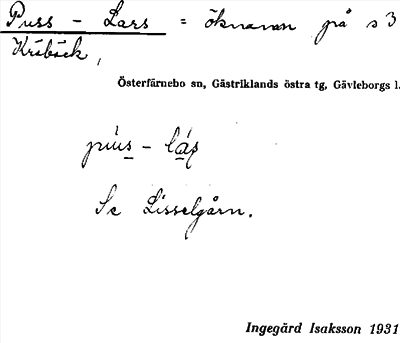 Puss - Lars = öknamn på s3
Kråbäck,
Österfärnebo sn, Gästriklands östra tg, Gävleborgs l.
Se Lisselgårn.
Ingegärd Isaksson 1931